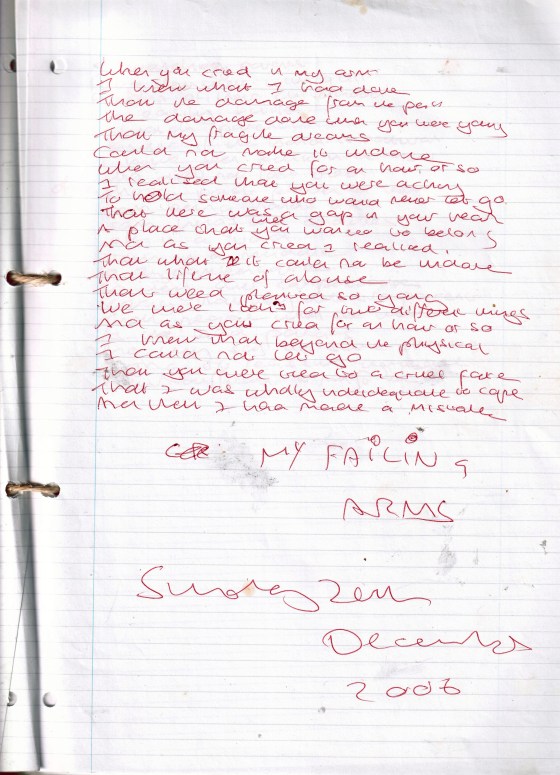 When you cried in my arms
I knew what I had done
That the damage from the past
The damage done when you were young
That my fragile dreams
Could not make it undone
When you cried for an hour or so
I realised that you were aching
To hold someone who would never let go
That there was a gap in your heart
A place that you wanted to belong
And as you cried I realised.
That what it could not be undone
That lifetime of abuse
That weed planted so young
We were looking for two different things
And as you cried for an hour or so
I knew that beyond the physical
I could not let go
That you were tied to a cruel fate
That I was wholly inadequate to cope
And then I had made a mistake
MY FAILING
ARMS
Sunday
December
2006